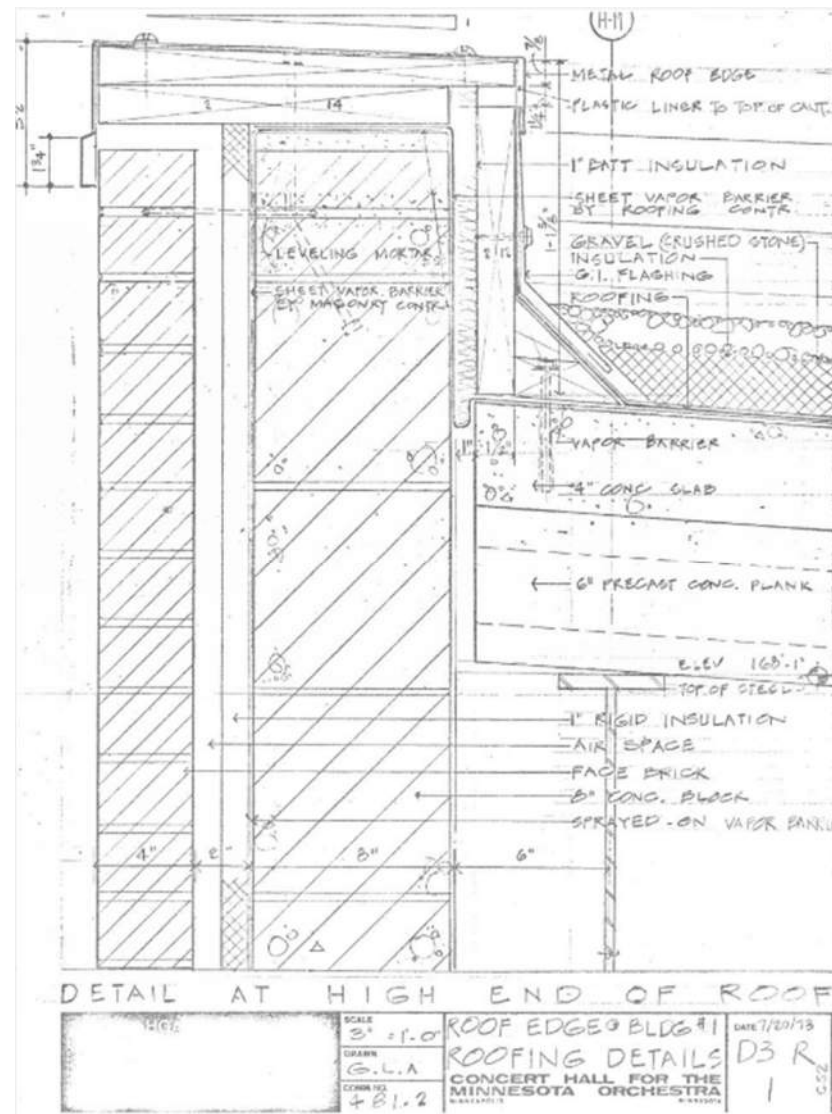 H-11
METAL ROOF EDGE
PLASTIC LINER TO TOP OF CAVIT.
2 14
1 3/4"
1" BATT INSULATION
SHEET VAPOR BARRIER
BY ROOFING CONTR.
GRAVEL (CRUSHED STONE)
INSULATION
G.I. FLASHING
ROOFING
LEVELING MORTAR
SHEET VAPOR BARRIER
BY MASONRY CONTR.
VAPOR BARRIER
4" CONC SLAB
6" PRECAST CONC. PLANK
ELEV 168'-1"
TOP OF STEEL
1" RIGID INSULATION
AIR SPACE
FACE BRICK
8" CONC. BLOCK
SPRAYED-ON VAPOR BARRI
4" 2" 8" 6"
DETAIL AT HIGH END OF ROOF
SCALE
3" = 1'-0"
DRAWN
G.L.A
COMM. NO.
481.2
ROOF EDGE @ BLDG #1
ROOFING DETAILS
CONCERT HALL FOR THE
MINNESOTA ORCHESTRA
MINNEAPOLIS MINNESOTA
DATE 7/20/73
D3 R
1